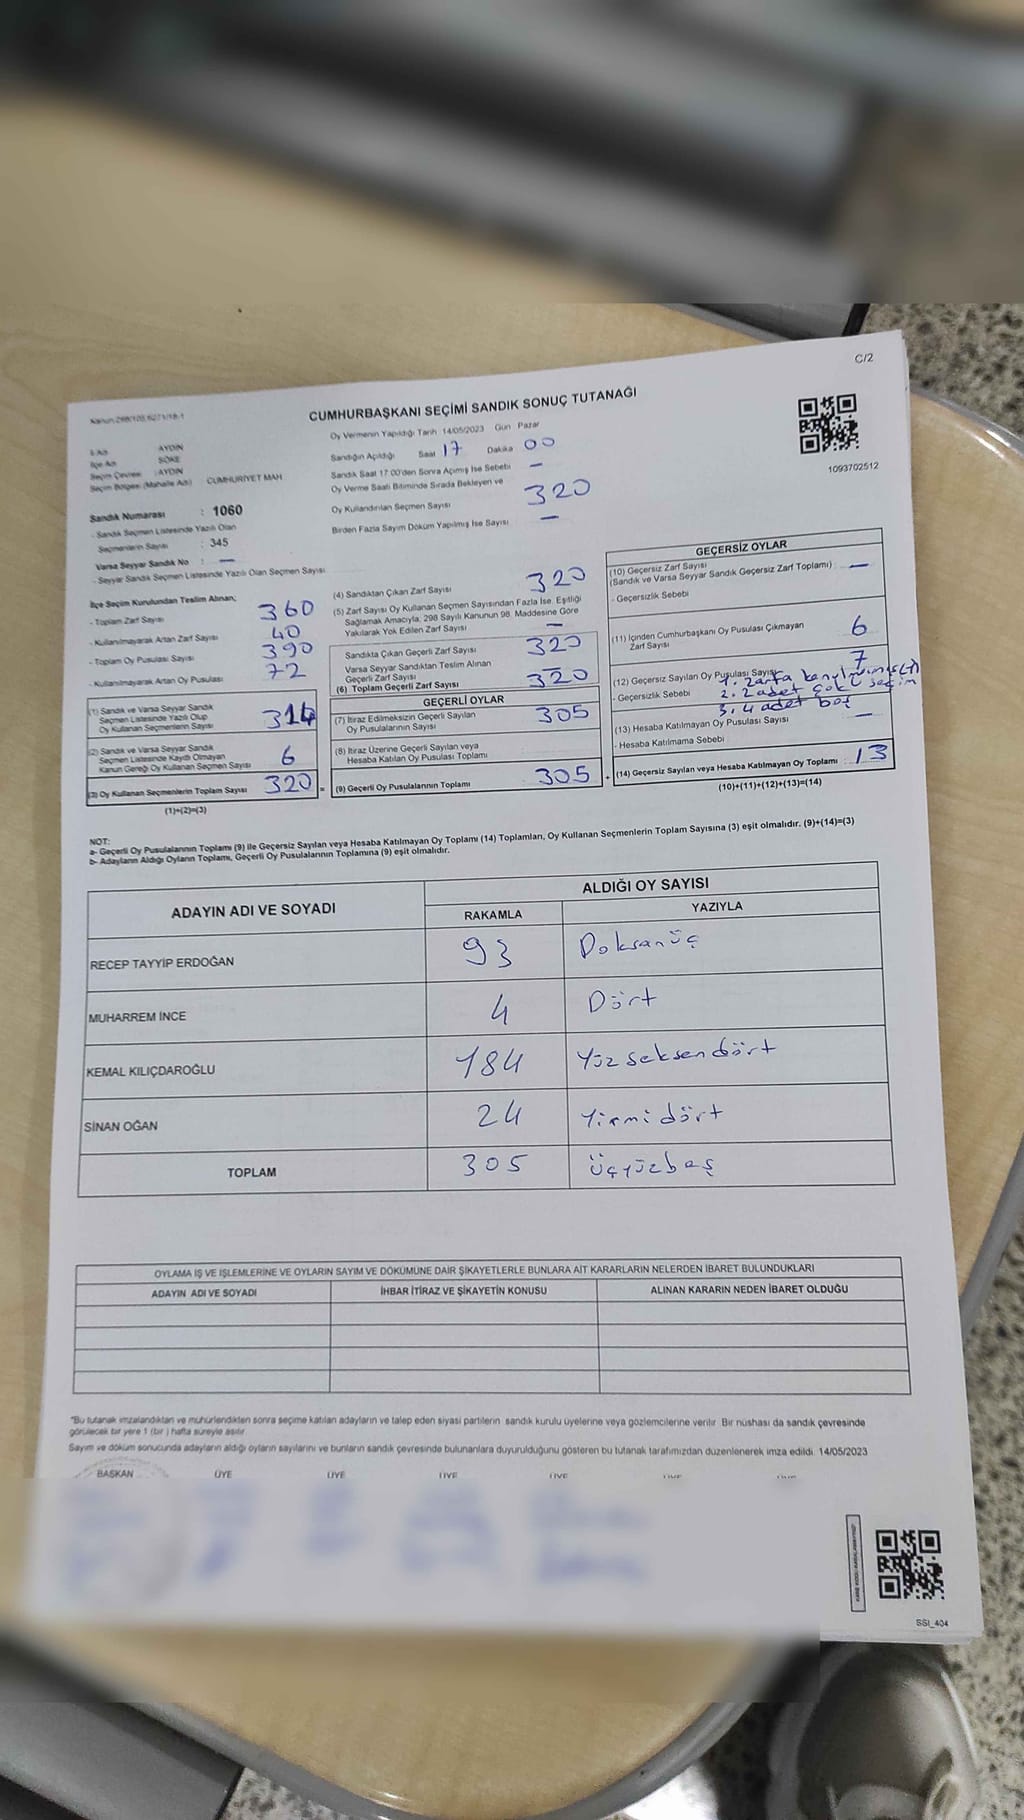 C/2
Kanun:298/105,6271/18-1
CUMHURBAŞKANI SEÇİMİ SANDIK SONUÇ TUTANAĞI
1093702512
İl Adı : AYDIN
İlçe Adı : SÖKE
Seçim Çevresi : AYDIN
Seçim Bölgesi (Mahalle Adı) CUMHURİYET MAH
Sandık Numarası : 1060
- Sandık Seçmen Listesinde Yazılı Olan
Seçmenlerin Sayısı : 345
Varsa Seyyar Sandık No : —
- Seyyar Sandık Seçmen Listesinde Yazılı Olan Seçmen Sayısı
Oy Vermenin Yapıldığı Tarih 14/05/2023 Gün Pazar
Sandığın Açıldığı Saat 17 Dakika 00
Sandık Saat 17:00'den Sonra Açımış İse Sebebi —
Oy Verme Saati Bitiminde Sırada Bekleyen ve
Oy Kullandırılan Seçmen Sayısı 320
Birden Fazla Sayım Döküm Yapılmış İse Sayısı —
İlçe Seçim Kurulundan Teslim Alınan;
- Toplam Zarf Sayısı 360
- Kullanılmayarak Artan Zarf Sayısı 40
- Toplam Oy Pusulası Sayısı 390
- Kullanılmayarak Artan Oy Pusulası 72
(1) Sandık ve Varsa Seyyar Sandık
Seçmen Listesinde Yazılı Olup
Oy Kullanan Seçmenlerin Sayısı 314
(2) Sandık ve Varsa Seyyar Sandık
Seçmen Listesinde Kayıtlı Olmayan
Kanun Gereği Oy Kullanan Seçmen Sayısı 6
(3) Oy Kullanan Seçmenlerin Toplam Sayısı 320 =
(1)+(2)=(3)
(4) Sandıktan Çıkan Zarf Sayısı 320
(5) Zarf Sayısı Oy Kullanan Seçmen Sayısından Fazla İse, Eşitliği
Sağlamak Amacıyla, 298 Sayılı Kanunun 98. Maddesine Göre
Yakılarak Yok Edilen Zarf Sayısı —
Sandıkta Çıkan Geçerli Zarf Sayısı 320
Varsa Seyyar Sandıktan Teslim Alınan
Geçerli Zarf Sayısı —
(6) Toplam Geçerli Zarf Sayısı 320
GEÇERLİ OYLAR
(7) İtiraz Edilmeksizin Geçerli Sayılan
Oy Pusulalarının Sayısı 305
(8) İtiraz Üzerine Geçerli Sayılan veya
Hesaba Katılan Oy Pusulası Toplamı
(9) Geçerli Oy Pusulalarının Toplamı 305 +
GEÇERSİZ OYLAR
(10) Geçersiz Zarf Sayısı
(Sandık ve Varsa Seyyar Sandık Geçersiz Zarf Toplamı) : —
- Geçersizlik Sebebi
(11) İçinden Cumhurbaşkanı Oy Pusulası Çıkmayan
Zarf Sayısı 6
(12) Geçersiz Sayılan Oy Pusulası Sayısı 7
- Geçersizlik Sebebi 1. zarfa
2. 2 adet çoklu seçim
3. 4 adet boş
(13) Hesaba Katılmayan Oy Pusulası Sayısı —
- Hesaba Katılmama Sebebi
(14) Geçersiz Sayılan veya Hesaba Katılmayan Oy Toplamı : 13
(10)+(11)+(12)+(13)=(14)
NOT:
a- Geçerli Oy Pusulalarının Toplamı (9) ile Geçersiz Sayılan veya Hesaba Katılmayan Oy Toplamı (14) Toplamları, Oy Kullanan Seçmenlerin Toplam Sayısına (3) eşit olmalıdır. (9)+(14)=(3)
b- Adayların Aldığı Oyların Toplamı, Geçerli Oy Pusulalarının Toplamına (9) eşit olmalıdır.
ADAYIN ADI VE SOYADI ALDIĞI OY SAYISI
RAKAMLA YAZIYLA
RECEP TAYYİP ERDOĞAN 93 Doksanüç
MUHARREM İNCE 4 Dört
KEMAL KILIÇDAROĞLU 184 Yüz seksendört
SİNAN OĞAN 24 Yirmi dört
TOPLAM 305 üçyüzbeş
OYLAMA İŞ VE İŞLEMLERİNE VE OYLARIN SAYIM VE DÖKÜMÜNE DAİR ŞİKAYETLERLE BUNLARA AİT KARARLARIN NELERDEN İBARET BULUNDUKLARI
ADAYIN ADI VE SOYADI İHBAR İTİRAZ VE ŞİKAYETİN KONUSU ALINAN KARARIN NEDEN İBARET OLDUĞU
*Bu tutanak imzalandıktan ve mühürlendikten sonra seçime katılan adayların ve talep eden siyasi partilerin sandık kurulu üyelerine veya gözlemcilerine verilir. Bir nüshası da sandık çevresinde
görülecek bir yere 1 (bir) hafta süreyle asılır.
Sayım ve döküm sonucunda adayların aldığı oyların sayılarını ve bunların sandık çevresinde bulunanlara duyurulduğunu gösteren bu tutanak tarafımızdan düzenlenerek imza edildi. 14/05/2023
BAŞKAN ÜYE ÜYE ÜYE ÜYE
SSI_404